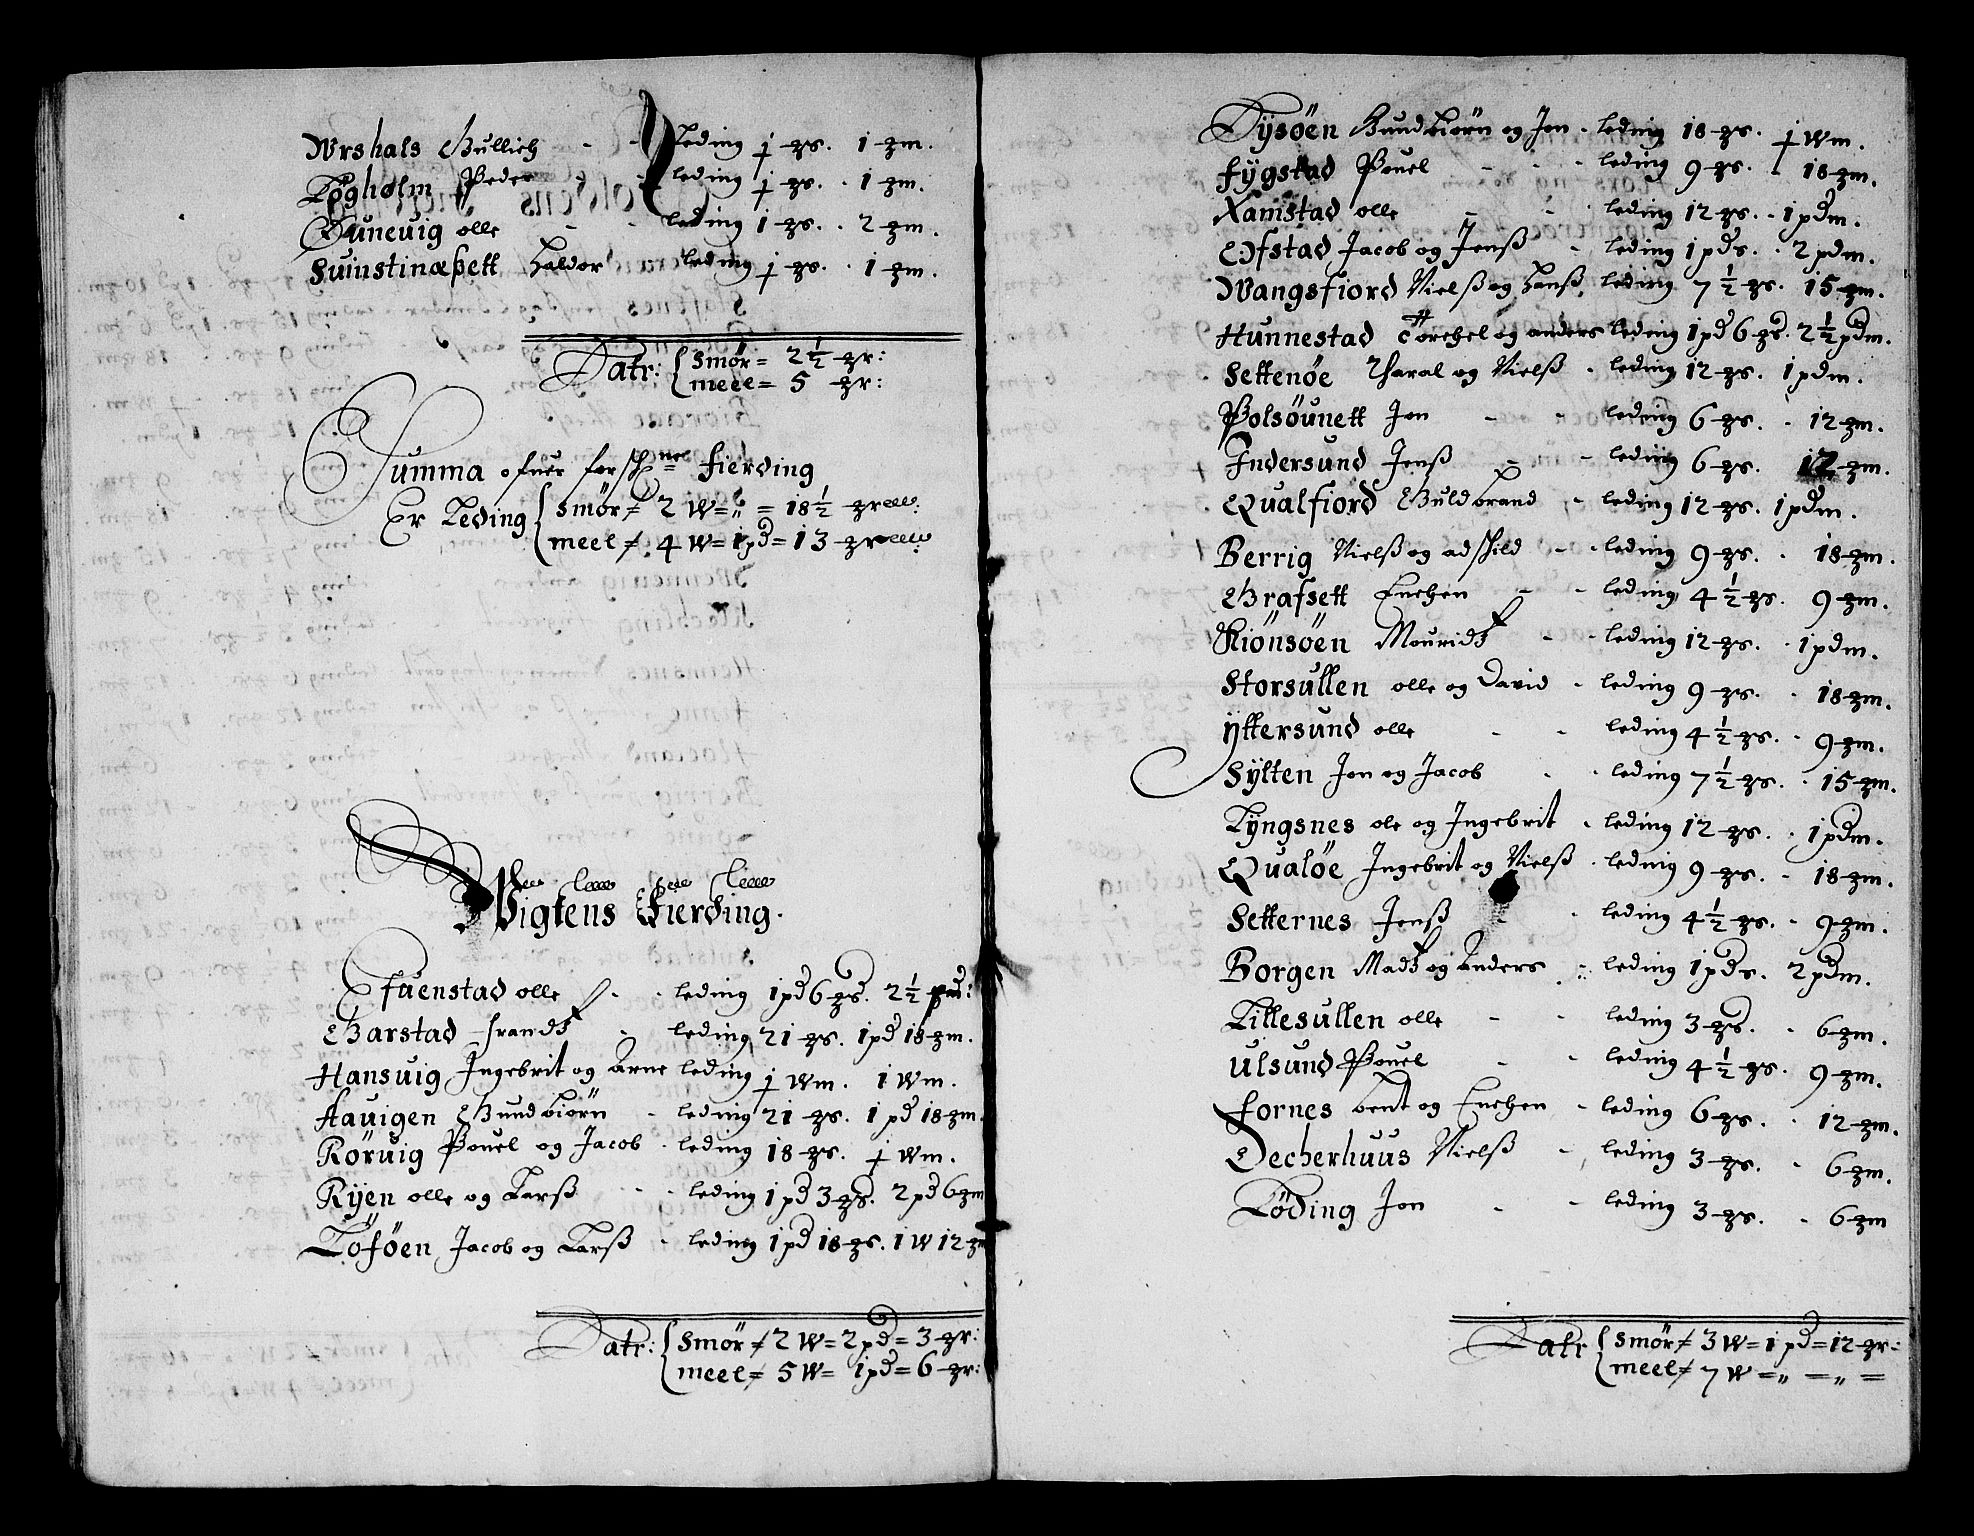 Wrshals Gullich - - leding ɉ zs. 1 zm.
Løgholm Peder - - leding ɉ zs. 1 zm.
Duneuig olle - - leding 1 zs. 2 zm.
Suinstinæßett Haldor leding ɉ zs. 1 zm.
Latr: { Smør = 2 1/2 zr:
meel = 5 zr:
Summa ofuer forschne fierding
Er Leding { Smør = 2 W = „ = 18 1/2 zr
meel = 4 W = 1 pd = 13 zr
Vigtens Fierding.
Efuenstad olle - - leding 1 pd 6 zs. 2 1/2 pd:
Garstad frandtz - leding 21 zs. 1 pd 18 zm.
Hansuig Ingebrit og Arne leding ɉ Wm. 1 Wm.
fauigen Gundbiørn - leding 21 zs. 1 pd 18 zm.
Røruig Pouel og Jacob - leding 18 zs. ɉ Wm.
Ryen olle og Larß - - leding 1 pd 3 zs. 2 pd 6 zm
Løføen Jacob og Larß - leding 1 pd 18 zs. 1 W 12 zm
Latr: { Smør = 2 W = 2 pd = 3 zr:
meel = 5 W = 1 pd = 6 zr:
Dysøen Gundbiørn og Jon - leding 18 zs. ɉ Wm.
fygstad Pouel - - - leding 9 zs. 18 zm.
Ramstad olle - - leding 12 zs. - 1 pdm.
Ofstad Jacob og Jenß - leding 1 pds. - 2 pdm.
Wangsfiord Nielß og Hanß leding 7 1/2 zs. 15 zm.
Hunnestad Torchel og anders leding 1 pd 6 zs. 2 1/2 pdm.
Settenøe Tharal og Nielß - leding 12 zs. 1 pdm.
Polsøunett Jon - - leding 6 zs. - 12 zm.
Indersund Jenß - - leding 6 zs. 12 zm.
Qualfiord Guldbrand - leding 12 zs. 1 pdm.
Berrig Nielß og adschild - - leding 9 zs. - 18 zm.
Grafsett Enchen - - leding 4 1/2 zs. 9 zm.
Riønsøen Mouridtz - - leding 12 zs. - 1 pdm.
Storsullen olle og David - leding 9 zs. - 18 zm.
Yttersund olle - - leding 4 1/2 zs. - 9 zm.
Sylten Jon og Jacob - - leding 7 1/2 zs. - 15 zm.
Lyngsnes ole og Ingebrit - leding 12 zs. - 1 pdm.
Qualøe Ingebrit og Nielß - leding 9 zs. - 18 zm.
Setternes Jenß - - leding 4 1/2 zs. - 9 zm.
Borgen Madtz og Anders - leding 1 pds. 2 pdm.
Lillesullen olle - - leding 3 zs. - 6 zm.
Ulsund Pouel - - leding 4 1/2 zs. 9 zm.
fornes bent og Enchen - leding 6 zs. - 12 zm.
Decherhuus Nielß - leding 3 zs. - 6 zm.
Løding Jon - - leding 3 zs. - 6 zm
Latr { Smør = 3 W = 1 pd = 12 zr:
meel = 7 W = „ = „ =